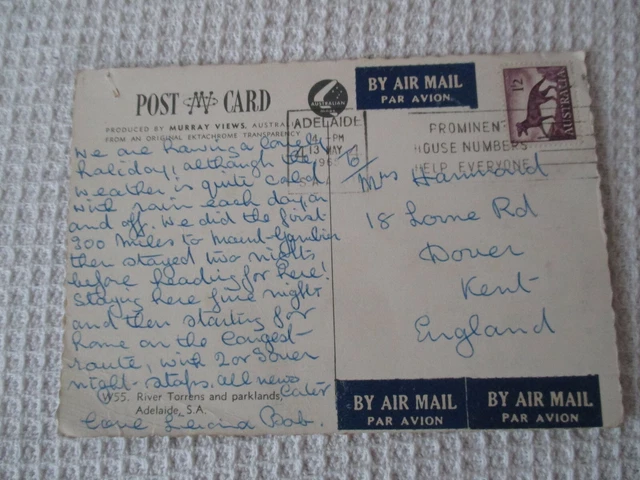 POST CARD
AUSTRALIAN
PRODUCED BY MURRAY VIEWS, AUSTRALIA
FROM AN ORIGINAL EKTACHROME TRANSPARENCY
We are having a lovely
holiday, although the
weather is quite cold
with rain each day on
and off. We did the first
300 miles to Mount Gambier
then stayed two nights
before heading for here!
Staying here five nights
and then starting for
home on the longest
route, with 2 or 3 over
night stops. All news
later
W55. River Torrens and parklands,
Adelaide, S.A.
Love Bob.
BY AIR MAIL
PAR AVION
12
AUSTRALIA
ADELAIDE
PM
13 MAY
196
PROMINENT
HOUSE NUMBERS
HELP EVERYONE
To/
Mrs
18 Lorne Rd
Dover
Kent
England
BY AIR MAIL
PAR AVION
BY AIR MAIL
PAR AVION